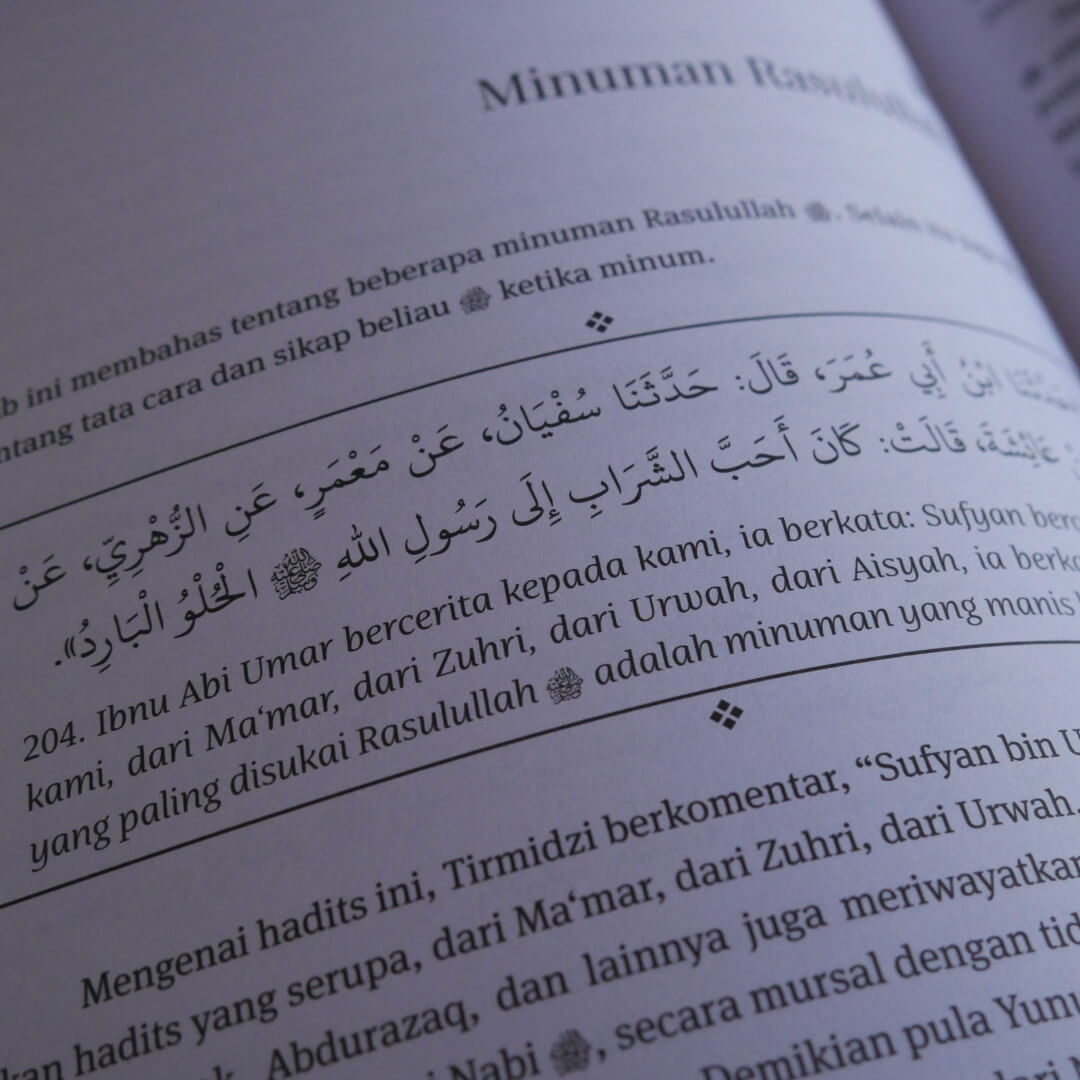 Minuman
ini membahas tentang beberapa minuman Rasulullah ﷺ. Selain itu
tentang tata cara dan sikap beliau ﷺ ketika minum.
ابْنُ أَبِي عُمَرَ، قَالَ: حَدَّثَنَا سُفْيَانُ، عَنْ مَعْمَرٍ، عَنِ الزُّهْرِيِّ، عَنْ
عَائِشَةَ، قَالَتْ: كَانَ أَحَبَّ الشَّرَابِ إِلَى رَسُولِ اللهِ ﷺ الْحُلْوُ الْبَارِدُ».
204. Ibnu Abi Umar bercerita kepada kami, ia berkata: Sufyan berc
kami, dari Ma‘mar, dari Zuhri, dari Urwah, dari Aisyah, ia berka
yang paling disukai Rasulullah ﷺ adalah minuman yang manis
Mengenai hadits ini, Tirmidzi berkomentar, “Sufyan bin U
kan hadits yang serupa, dari Ma‘mar, dari Zuhri, dari Urwah.
Abdurazaq, dan lainnya juga meriwayatkan
Nabi ﷺ, secara mursal dengan tid
Demikian pula Yunu
dari